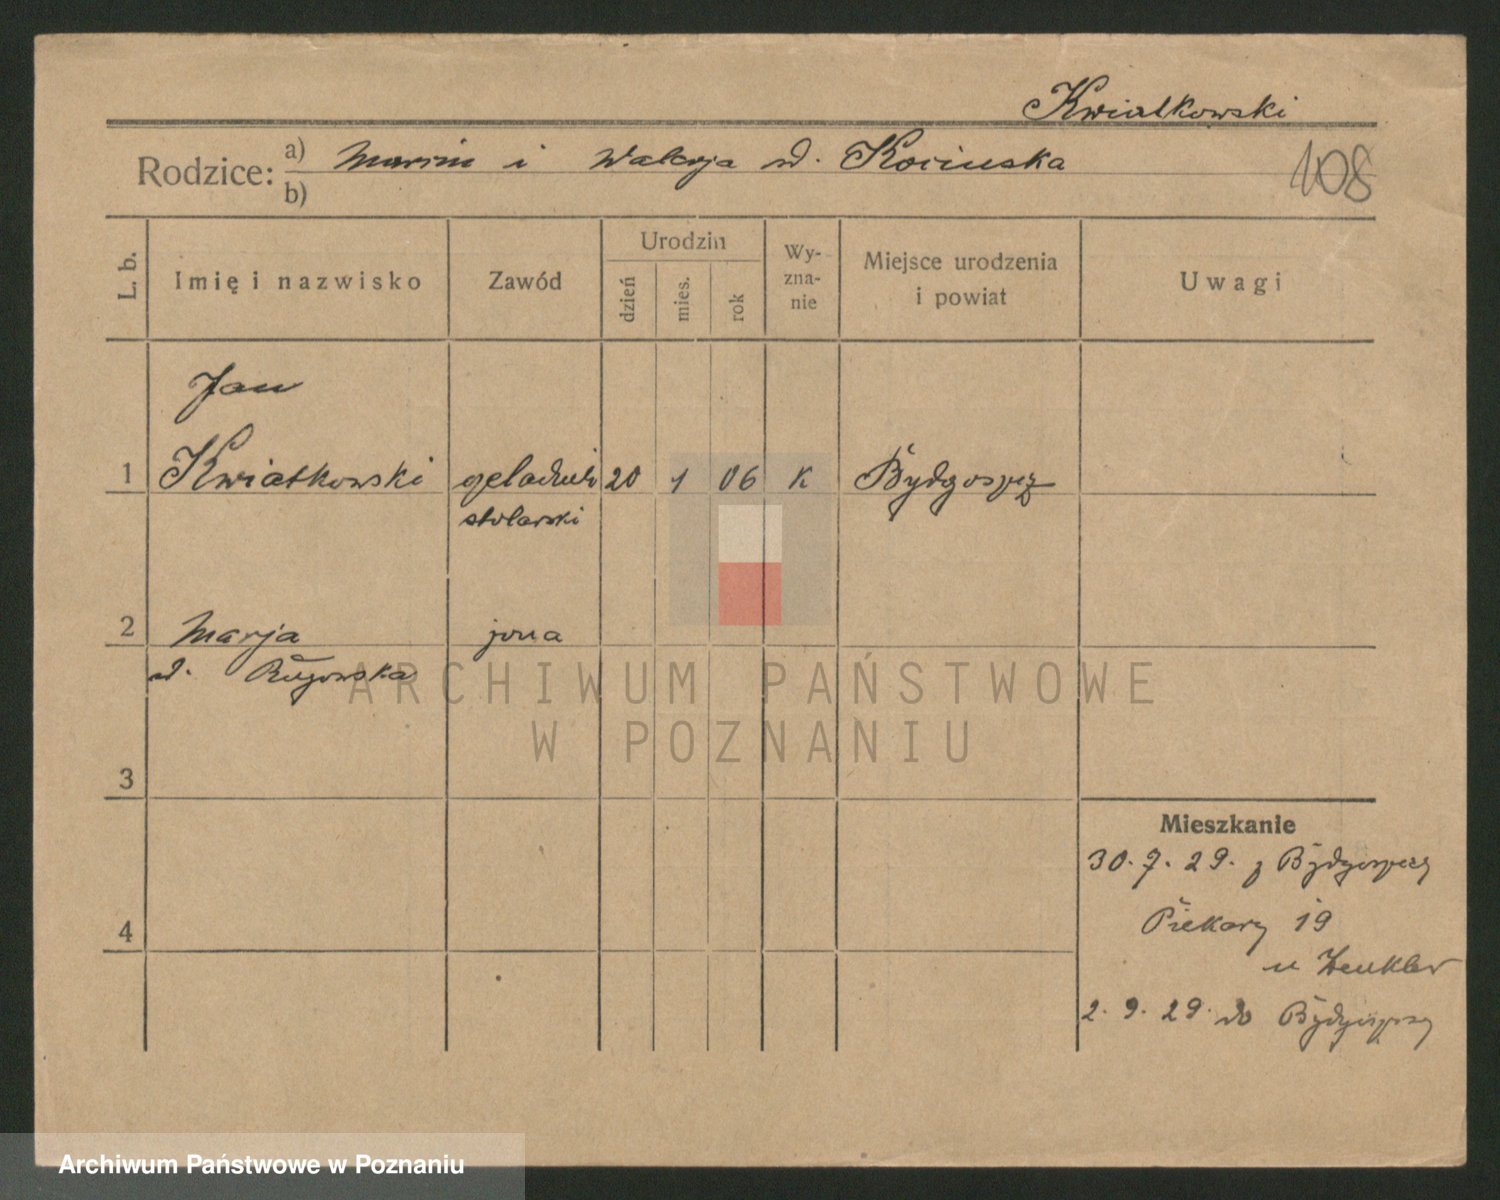 Kwiatkowski
Rodzice: a) Marcin i Walerja d. Kocińska
b)
108
L. b.
Imię i nazwisko
Zawód
Urodzin
dzień
mies.
rok
Wy-
zna-
nie
Miejsce urodzenia
i powiat
Uwagi
Jan
1 Kwiatkowski czeladnik 20 1 06 K Bydgoszcz
stolarski
2 Marja żona
d. Rużowska
3
4
Mieszkanie
30. 7. 29. z Bydgoszczy
Piekary 19
u
2. 9. 29. do Bydgoszczy
ARCHIWUM PAŃSTWOWE
W POZNANIU
Archiwum Państwowe w Poznaniu